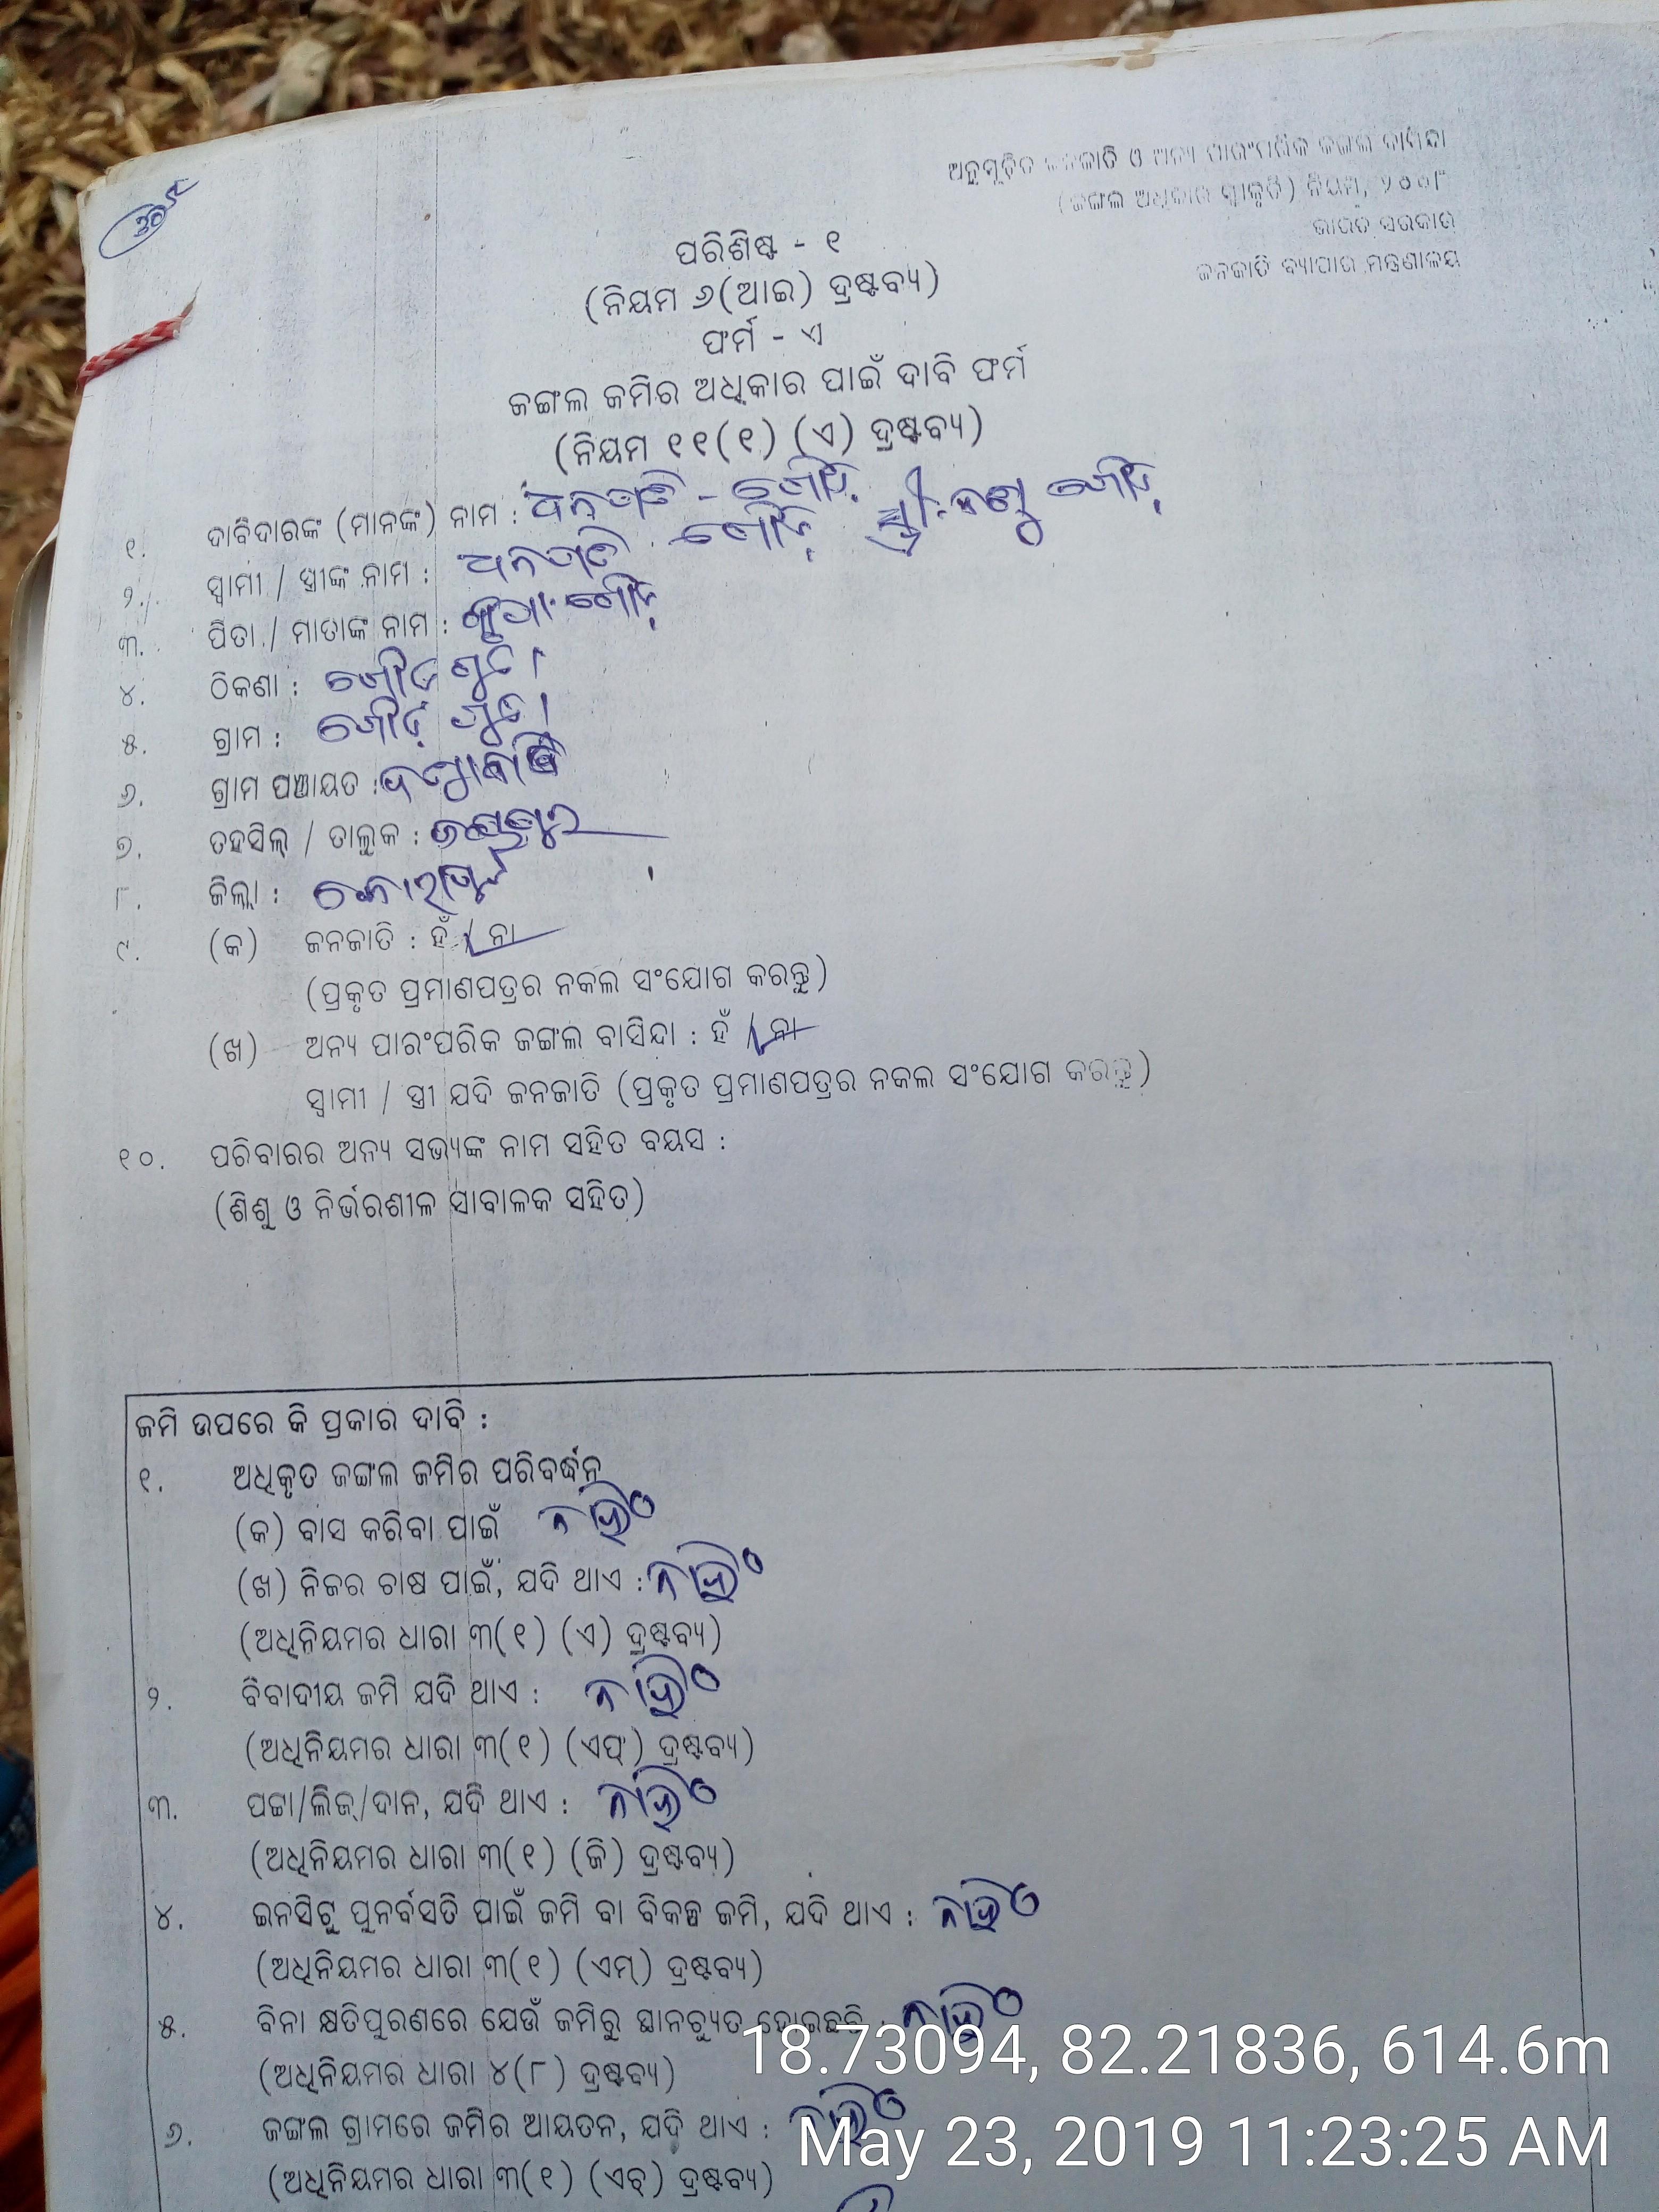 ଅନୁସୂଚିତ ଜନଜାତି ଓ ଅନ୍ୟ ପାରଂପରିକ ଜଙ୍ଗଲ ବାସିନ୍ଦା
(ଜଙ୍ଗଲ ଅଧିକାର ସ୍ୱୀକୃତି) ନିୟମ, ୨୦୦୮
ଭାରତ ସରକାର
ଜନଜାତି ବ୍ୟାପାର ମନ୍ତ୍ରଣାଳୟ
ପରିଶିଷ୍ଟ - ୧
(ନିୟମ ୬(ଆଇ) ଦ୍ରଷ୍ଟବ୍ୟ)
ଫର୍ମ - ଏ
ଜଙ୍ଗଲ ଜମିର ଅଧିକାର ପାଇଁ ଦାବି ଫର୍ମ
(ନିୟମ ୧୧(୧) (ଏ) ଦ୍ରଷ୍ଟବ୍ୟ)
୧. ଦାବିଦାରଙ୍କ (ମାନଙ୍କ) ନାମ : ଧନପତି - ଗୌଡ଼ ସ୍ତ୍ରୀ: ଗୌଡ଼
୨. ସ୍ୱାମୀ / ସ୍ତ୍ରୀଙ୍କ ନାମ : ଧନପତି ଗୌଡ଼
୩. ପିତା / ମାତାଙ୍କ ନାମ : ଗୌଡ଼
୪. ଠିକଣା : ଗୌଡ଼ ଗୁଡ଼ା
୫. ଗ୍ରାମ : ଗୌଡ଼ ଗୁଡ଼ା
୬. ଗ୍ରାମ ପଞ୍ଚାୟତ :
୭. ତହସିଲ୍ / ତାଲୁକ :
୮. ଜିଲ୍ଲା : କୋରାପୁଟ
୯. (କ) ଜନଜାତି : ହଁ / ନା
(ପ୍ରକୃତ ପ୍ରମାଣପତ୍ରର ନକଲ ସଂଯୋଗ କରନ୍ତୁ)
(ଖ) ଅନ୍ୟ ପାରଂପରିକ ଜଙ୍ଗଲ ବାସିନ୍ଦା : ହଁ / ନା
ସ୍ୱାମୀ / ସ୍ତ୍ରୀ ଯଦି ଜନଜାତି (ପ୍ରକୃତ ପ୍ରମାଣପତ୍ରର ନକଲ ସଂଯୋଗ କରନ୍ତୁ)
୧୦. ପରିବାରର ଅନ୍ୟ ସଭ୍ୟଙ୍କ ନାମ ସହିତ ବୟସ :
(ଶିଶୁ ଓ ନିର୍ଭରଶୀଳ ସାବାଳକ ସହିତ)
ଜମି ଉପରେ କି ପ୍ରକାର ଦାବି :
୧. ଅଧିକୃତ ଜଙ୍ଗଲ ଜମିର ପରିବର୍ଦ୍ଧନ
(କ) ବାସ କରିବା ପାଇଁ ନାହିଁ
(ଖ) ନିଜର ଚାଷ ପାଇଁ, ଯଦି ଥାଏ : ନାହିଁ
(ଅଧିନିୟମର ଧାରା ୩(୧) (ଏ) ଦ୍ରଷ୍ଟବ୍ୟ)
୨. ବିବାଦୀୟ ଜମି ଯଦି ଥାଏ : ନାହିଁ
(ଅଧିନିୟମର ଧାରା ୩(୧) (ଏଫ୍) ଦ୍ରଷ୍ଟବ୍ୟ)
୩. ପଟ୍ଟା/ଲିଜ୍/ଦାନ, ଯଦି ଥାଏ : ନାହିଁ
(ଅଧିନିୟମର ଧାରା ୩(୧) (ଜି) ଦ୍ରଷ୍ଟବ୍ୟ)
୪. ଇନସିଟୁ ପୁନର୍ବସତି ପାଇଁ ଜମି ବା ବିକଳ୍ପ ଜମି, ଯଦି ଥାଏ : ନାହିଁ
(ଅଧିନିୟମର ଧାରା ୩(୧) (ଏମ୍) ଦ୍ରଷ୍ଟବ୍ୟ)
୫. ବିନା କ୍ଷତିପୁରଣରେ ଯେଉଁ ଜମିରୁ ସ୍ଥାନଚ୍ୟୁତ ହୋଇଛନ୍ତି : ନାହିଁ
(ଅଧିନିୟମର ଧାରା ୪(୮) ଦ୍ରଷ୍ଟବ୍ୟ)
୬. ଜଙ୍ଗଲ ଗ୍ରାମରେ ଜମିର ଆୟତନ, ଯଦି ଥାଏ : ନାହିଁ
(ଅଧିନିୟମର ଧାରା ୩(୧) (ଏଚ୍) ଦ୍ରଷ୍ଟବ୍ୟ)
18.73094, 82.21836, 614.6m
May 23, 2019 11:23:25 AM